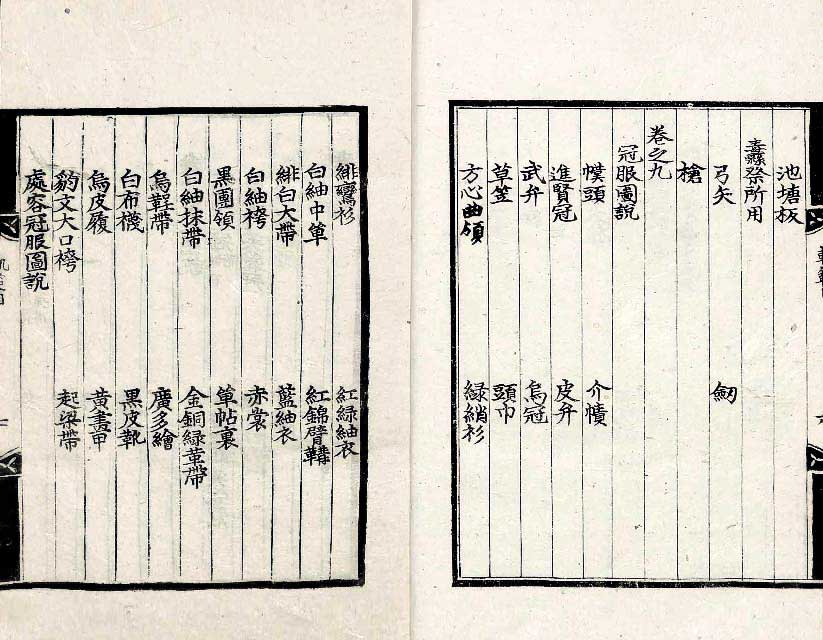 池塘板
纛祭所用
弓矢 劒
槍
卷之九
冠服圖說
幞頭 介幘
進賢冠 皮弁
武弁 烏冠
草笠 頭巾
方心曲領 緑綃衫
緋鸞衫 紅緑紬衣
白紬中單 紅錦臂鞲
緋白大帶 藍紬衣
白紬袴 赤裳
黑團領 單帖裏
白紬抹帶 金銅緑革帶
烏鞓帶 廣多繪
白布襪 黑皮靴
烏皮履 黃畫甲
豹文大口袴 起梁帶
處容冠服圖說